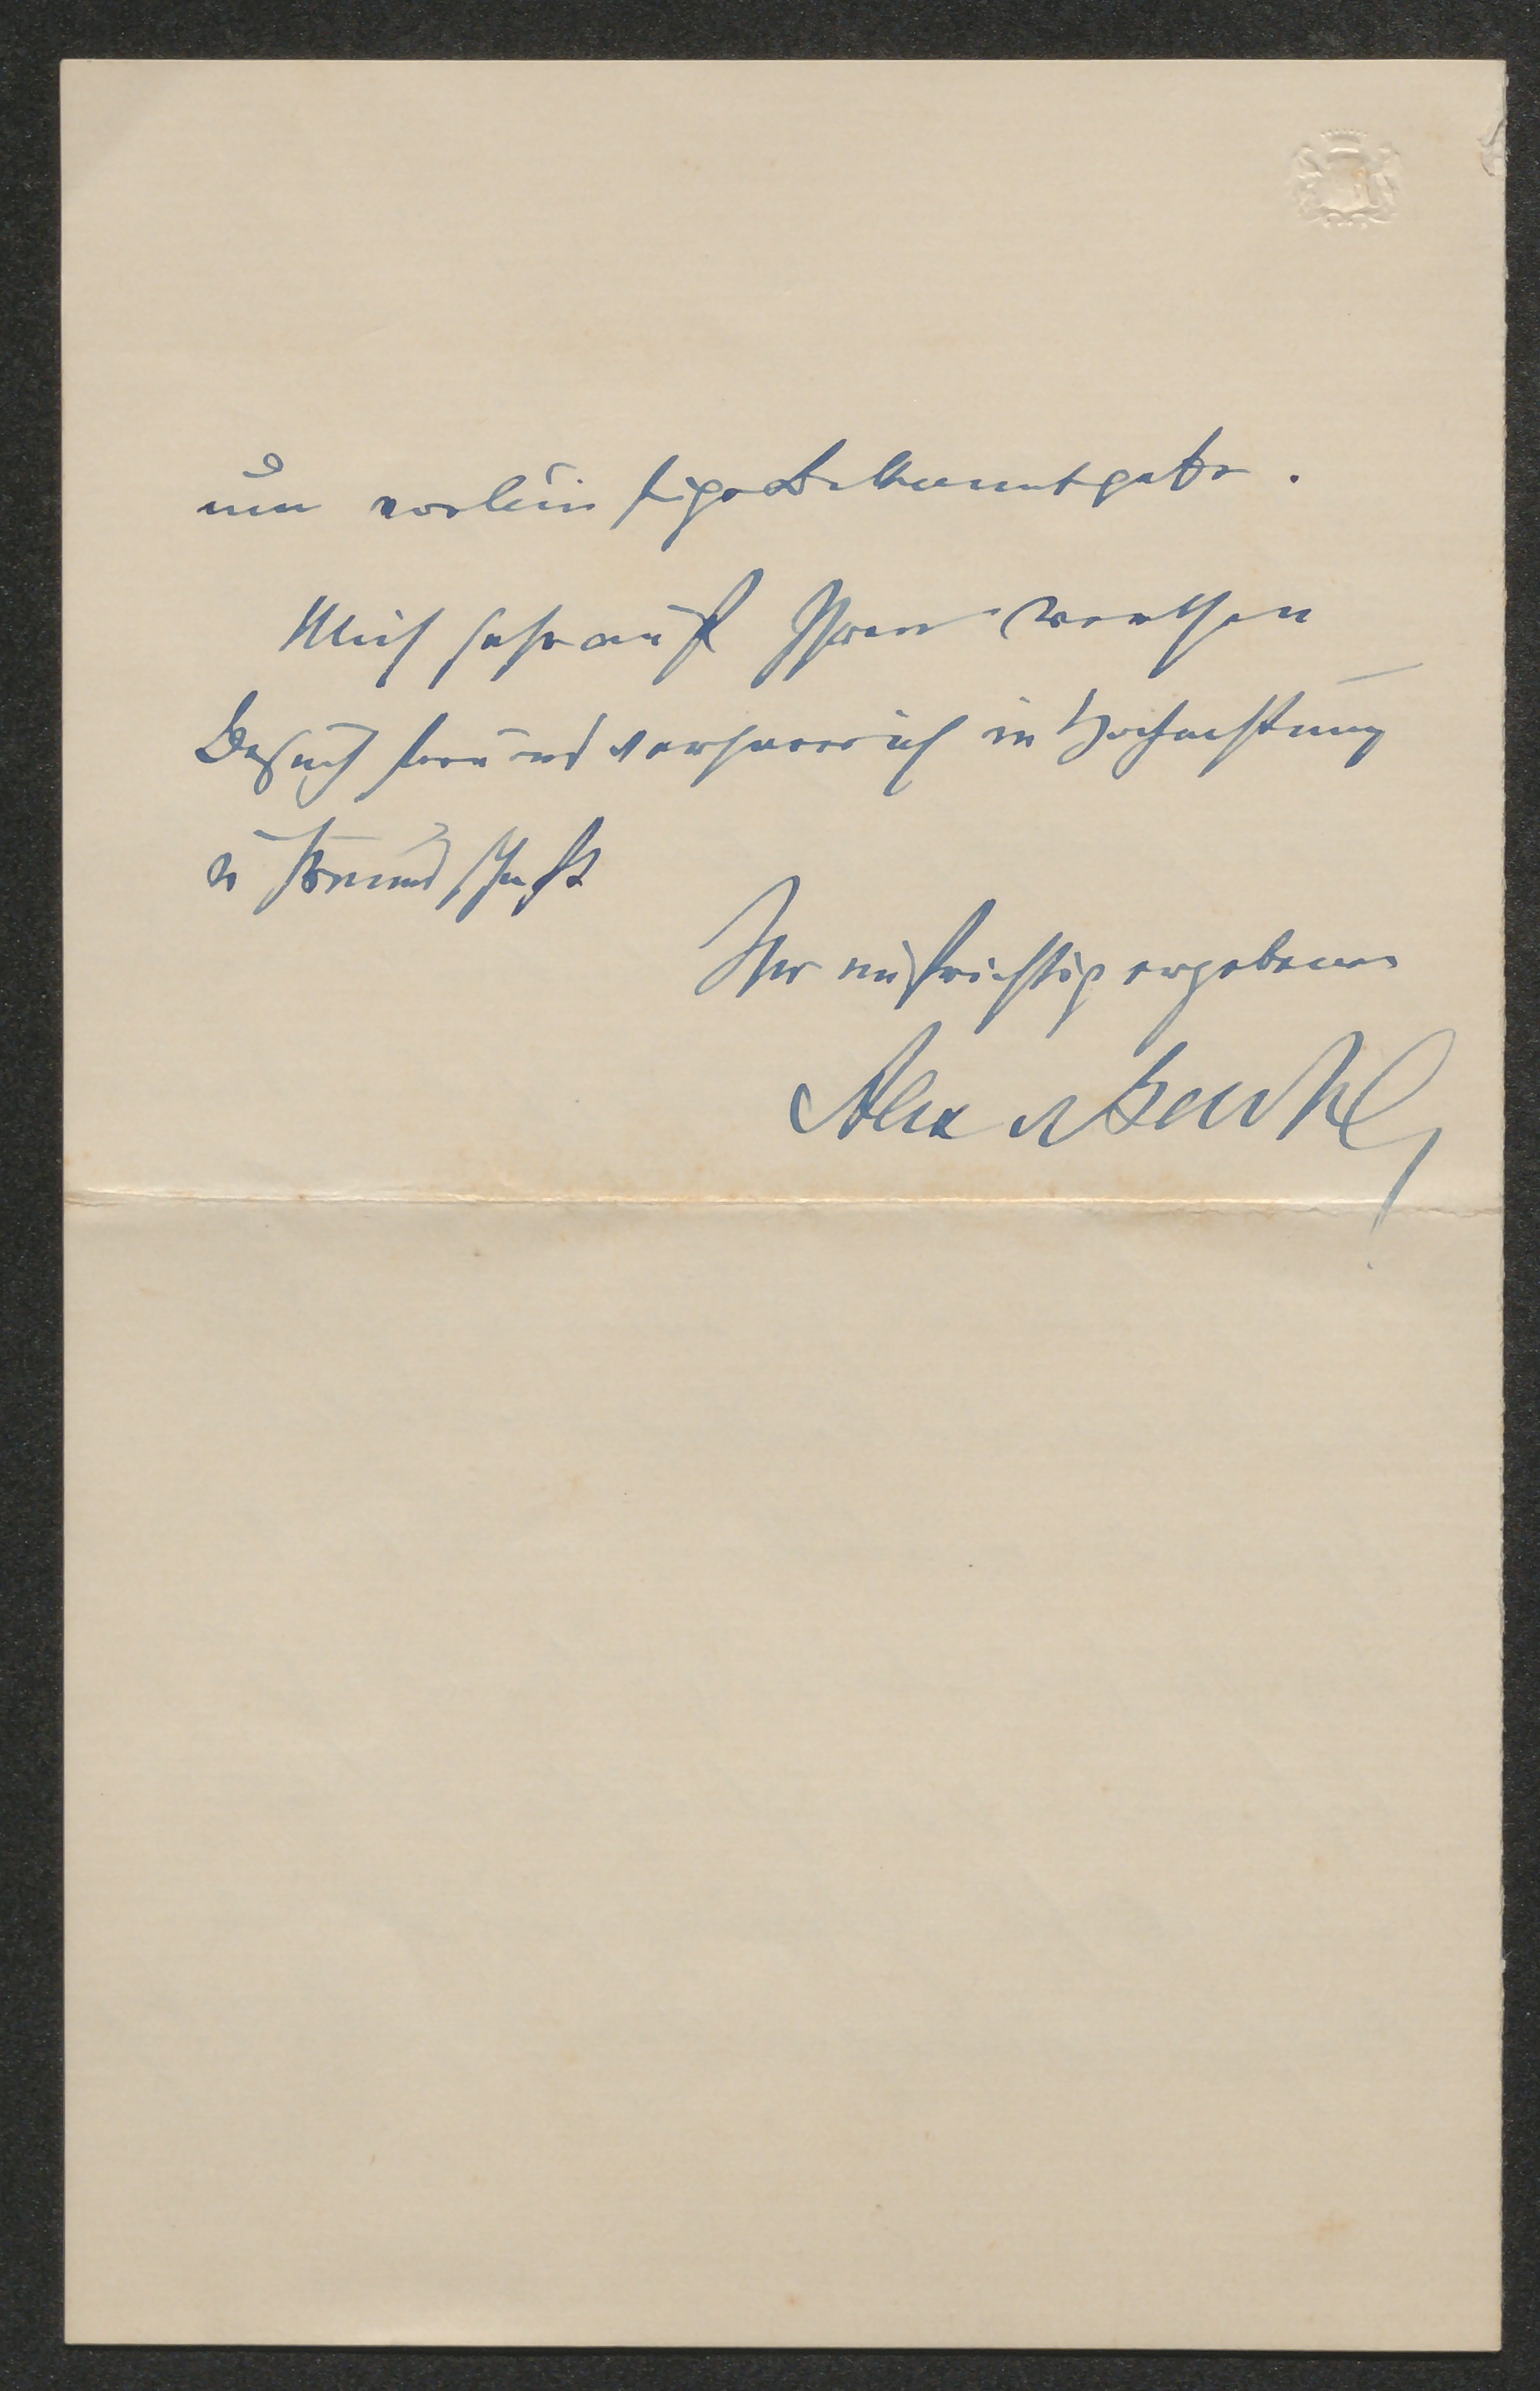 um vorläufige Bekanntgabe.
Mich sehr auf Ihren werthen
Besuch freuend verharre ich in Hochachtung
u Freundschaft
Ihr aufrichtig ergebener
Alex v